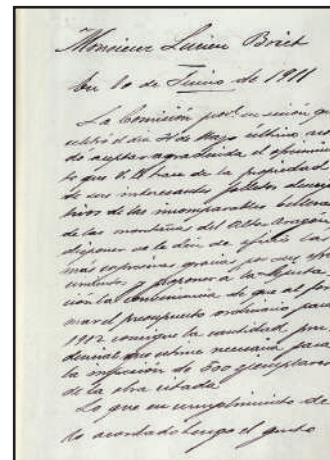 Monsieur Lucien Briet
En 10 de Junio de 1911
La Comisión prov.l en sesión que
celebró el día 31 de Mayo último acor
dó aceptar agradecida el ofrecimien
to que V. hace de la propiedad
de sus interesantes folletos descrip
tivos de las incomparables bellezas
de las montañas del Alto Aragón
disponer se le dén de oficio las
más expresivas gracias por su ofre
cimiento y proponer a la Diputa
ción la conveniencia de que al for
mar el presupuesto ordinario para
1912 consigne la cantidad pru
dencial que estime necesaria para
la impresión de 500 ejemplares
de la obra citada
Lo que en cumplimiento de
lo acordado tengo el gusto